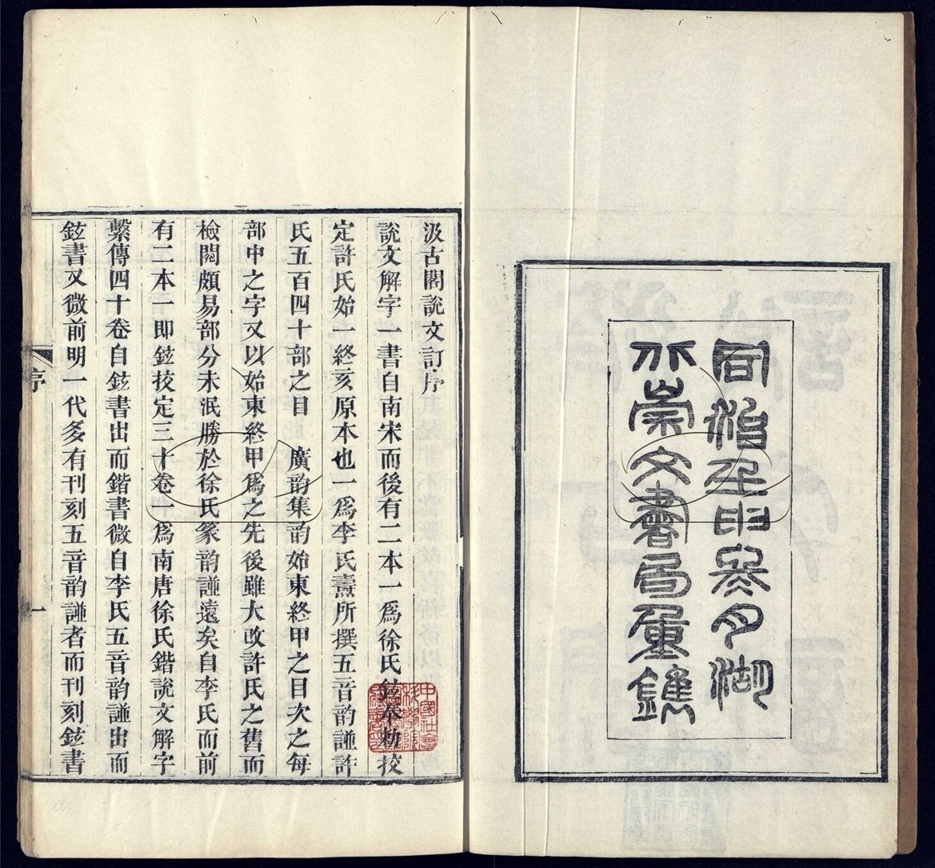 同治壬申冬月湖
北崇文書局重鐫
汲古閣說文訂序
說文解字一書自南宋而後有二本一爲徐氏鉉奉勅挍
定許氏始一終亥原本也一爲李氏燾所撰五音韵譜許
氏五百四十部之目 廣韵集韵始東終甲之目次之每
部中之字又以始東終甲爲之先後雖大改許氏之舊而
檢閱頗易部分未泯勝於徐氏篆韵譜遠矣自李氏而前
有二本一即鉉挍定三十卷一爲南唐徐氏鍇說文解字
繫傳四十卷自鉉書出而鍇書微自李氏五音韵譜出而
鉉書又微前明一代多有刊刻五音韵譜者而刊刻鉉書
序
一